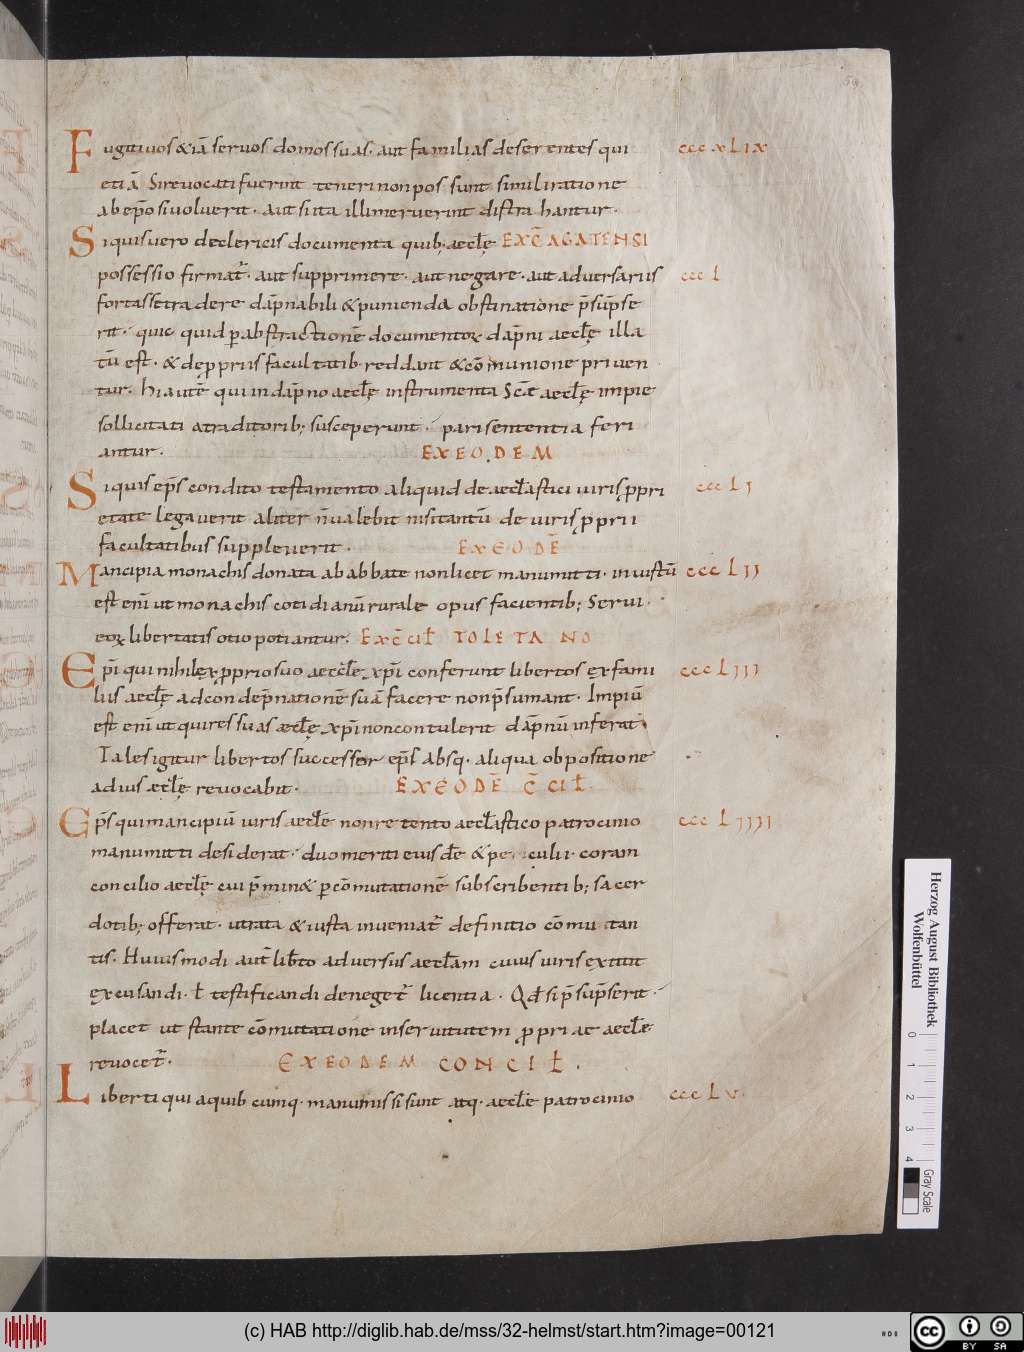 59
Fugitiuos &iā seruos domos suas. aut familias deserentes qui cccxLix
etiā Si reuocati fuerint teneri non pos sunt simili ratione
ab ep̄o si uoluerit. aut si ita illi meruerint distra hantur.
Siquis uero declericis documenta quib; aeccłę EXC̄ AGATENSI
possessio firmat̄. aut supprimere. aut negare. aut aduersariis ccc L
fortasse tra dere dāpnabili &punienda obstinatione p̄sūpse
rit. quic quid ꝑabstractionē documentoꝝ dāpni aeccłę illa
tū est. & de ꝓpriis facul tatib. reddant &cōmunione priuen
tur. hi autē qui in dāpno aeccłę instrumenta Scāe aeccłę impie
sollicitati atraditorib; susceperunt. pari sententia feri
antur. EXEODEM
Siquis ep̄s condito testamento aliquid de aeccłastici iuris ꝓpri ccc L j
etate legauerit aliter n̄ ualebit nisi tantū de iuris ꝓprii
facultatibus suppleuerit. EXEODĒ
Mancipia monachis donata ab abbate non licet manumitti. iniustū ccc L jj
est enī ut monachis cotidianū rurale opus facientib; Serui
eoꝝ libertatis otio potiantur. EXC̄ CIŁ TOLETANO
Ep̄i qui nihil ex ꝓprio suo aeccłę xp̄i conferunt libertos ex fami ccc L jjj
liis aeccłę ad condēpnationē suā facere non p̄sumant. Impiū
est enī ut qui res suas aeccłę xp̄i non contulerit dāpnū inferat
Tales igitur libertos successor ep̄s absq. aliqua obpositione
ad ius aeccłę reuocabit. EXEODĒ C̄CIŁ
Ep̄s qui mancipiū iuris aeccłę non retento aeccłastico patrocinio ccc L jjjj
manumitti desiderat. duo meriti eiusdē &peculii. coram
concilio aeccłę cui p̄min& ꝑ cōmutationē subscribentib; sacer
dotib; offerat. ut rata &iusta inueniat̄ definitio cōmutan
tis. Huius modi aut̄ libt̄o aduersus aeccłam cuius iuris extitit
excusandi. ł testificandi deneget̄ licentia. Qd̄ si p̄sūpserit.
placet ut stante cōmutatione in seruitutem ꝓpriae aeccłę
reuocet̄. EXEODEM CONCIŁ.
Liberti qui aquib cumq. manumissi sunt atq. aeccłę patrocinio ccc L v.
Herzog August Bibliothek
Wolfenbüttel
0 1 2 3 4
Gray Scale
(c) HAB http://diglib.hab.de/mss/32-helmst/start.htm?image=00121
cc BY SA